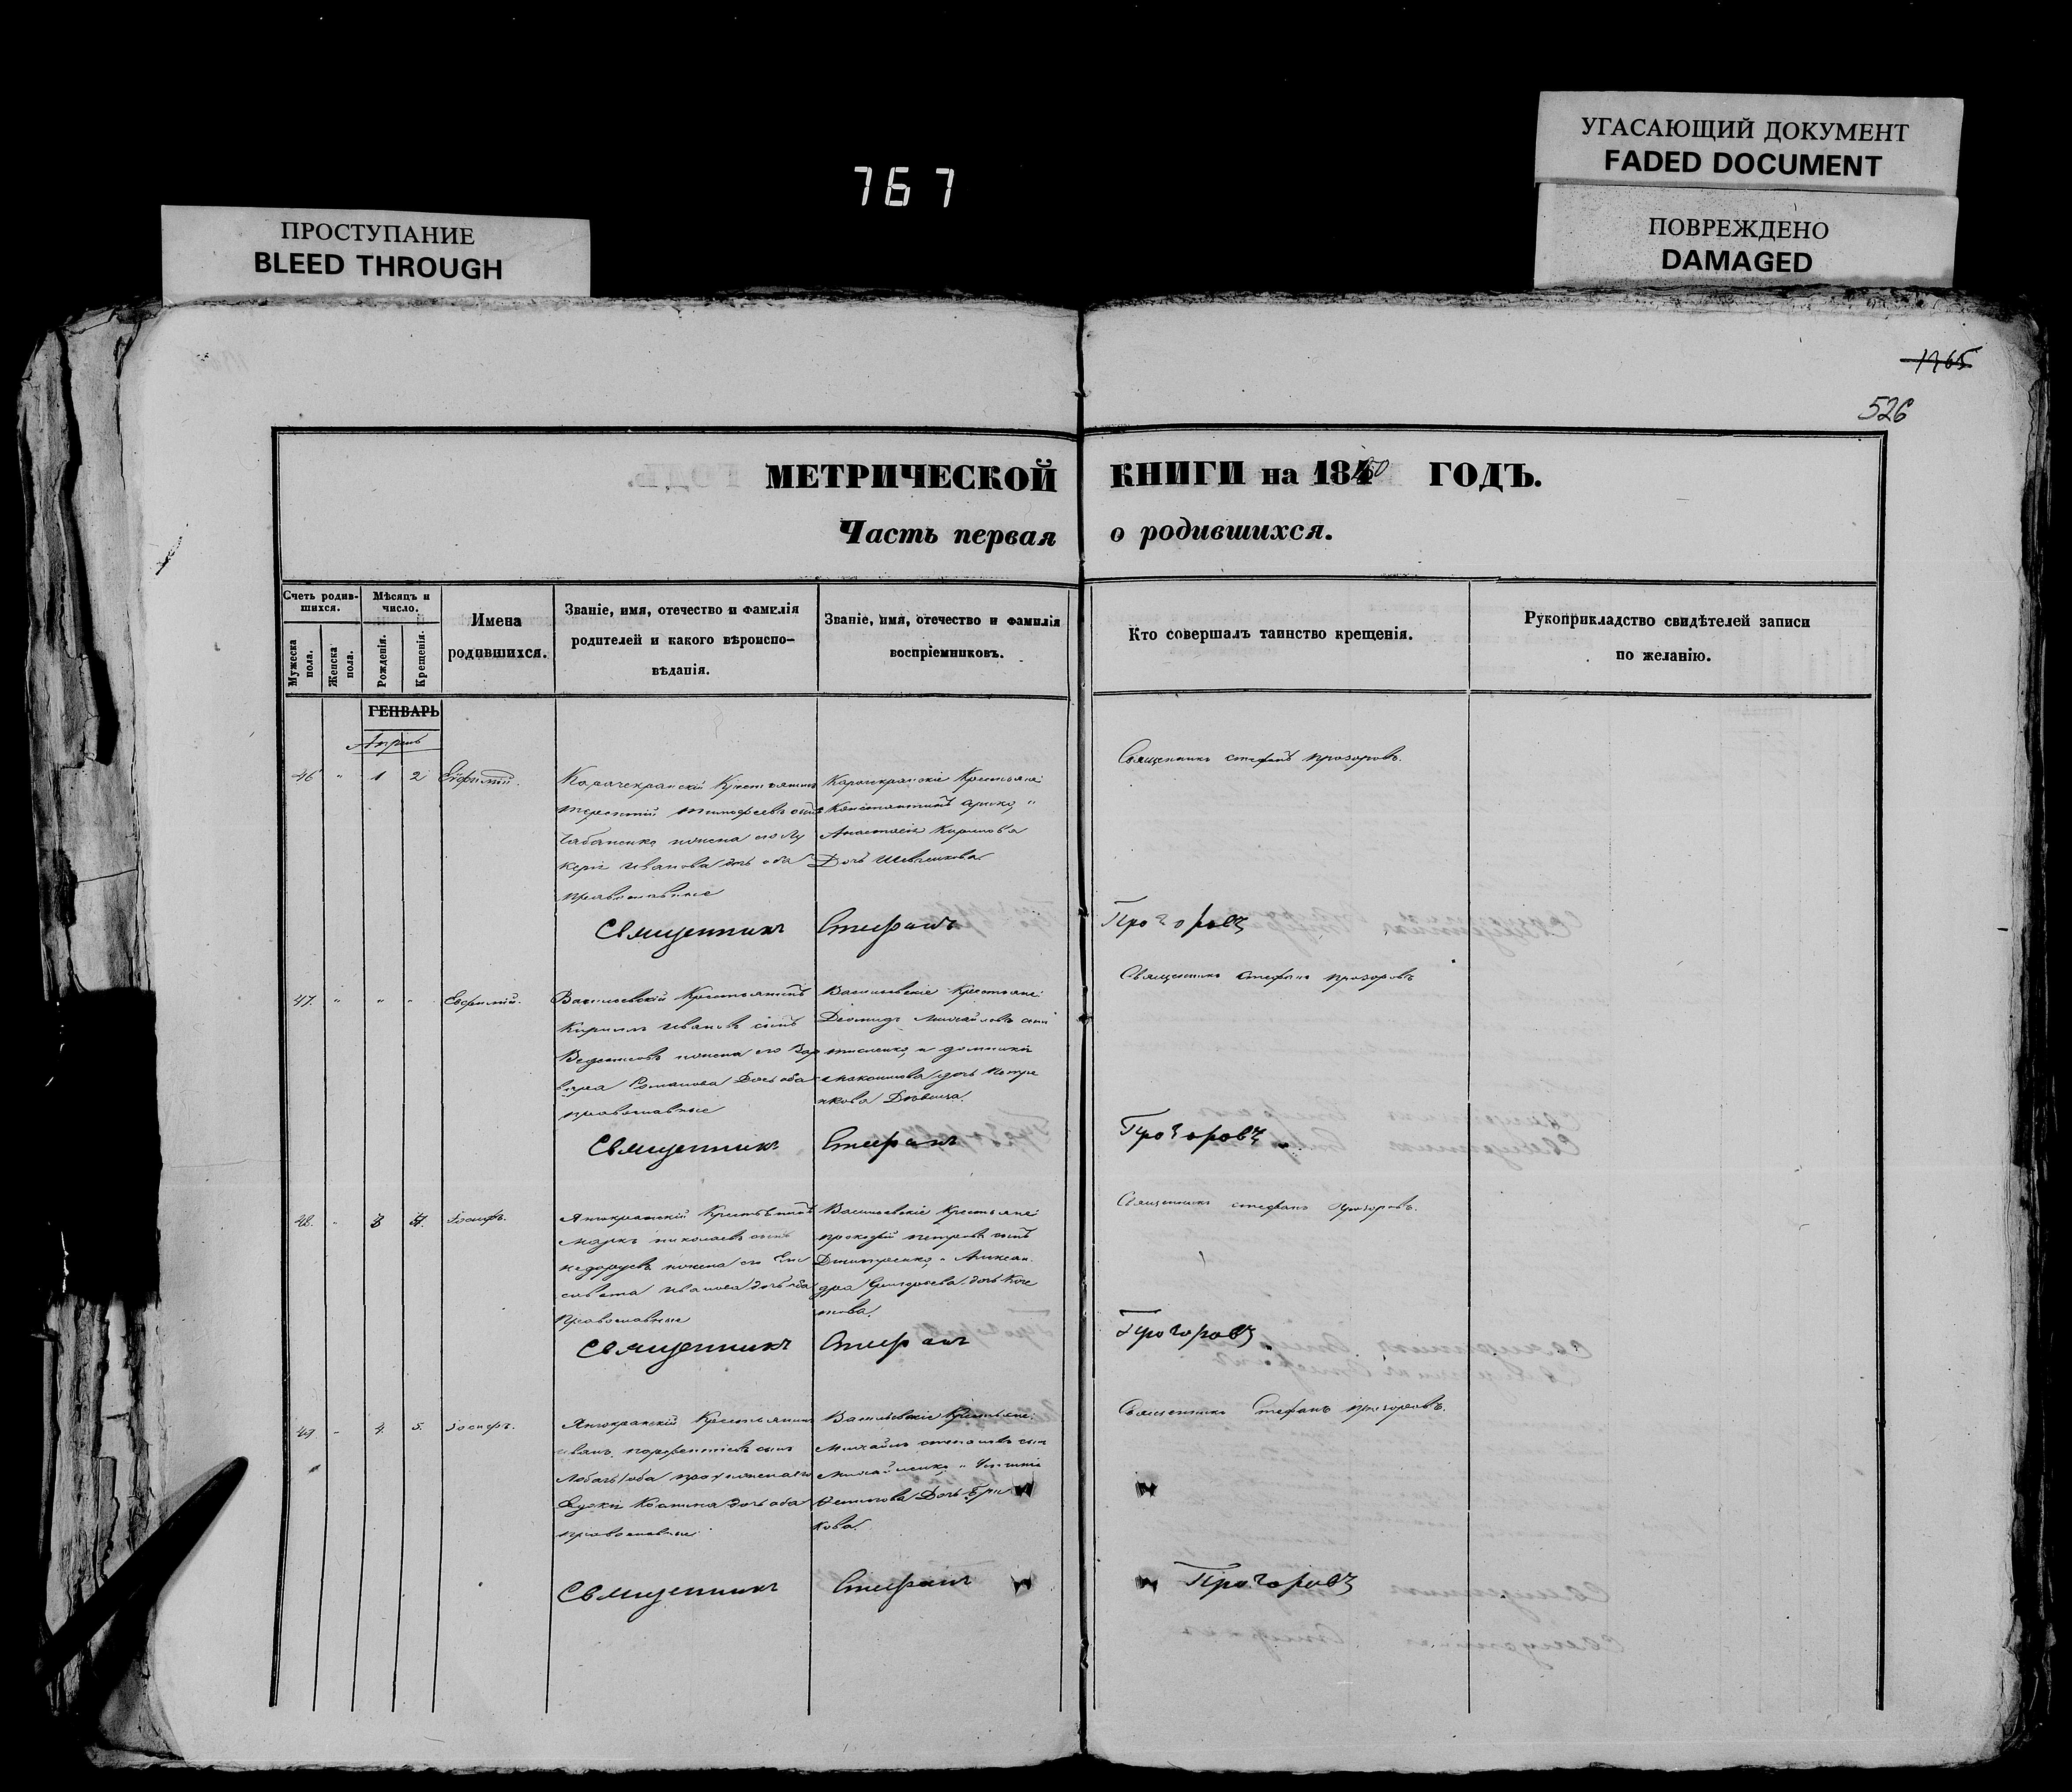 УГАСАЮЩИЙ ДОКУМЕНТ
FADED DOCUMENT
767
ПРОСТУПАНИЕ
BLEED THROUGH
ПОВРЕЖДЕНО
DAMAGED
1765
526
МЕТРИЧЕСКОЙ КНИГИ на 1850 ГОДЪ.
Часть первая о родившихся.
Счетъ родив-
шихся.
Мужеска
пола.
Женска
пола.
Мѣсяцъ и
число.
Рожденія.
Крещенія.
Имена
родившихся.
Званіе, имя, отечество и фамилія
родителей и какого вѣроиспо-
вѣданія.
Званіе, имя, отечество и фамилія
воспріемниковъ.
Кто совершалъ таинство крещенія.
Рукоприкладство свидѣтелей записи
по желанію.
ГЕНВАРЬ
Апрель
46 " 1 2 Евфимій.
Карачекранскій Крестьянинъ
Терентій Тимофеевъ сынъ
Чабаненко, и жена его Лу
керія Иванова дочь оба
православные
Карачекранскіе Крестьяне:
Константинъ
Анастасія
Дочь Шевченкова
Священникъ Стефанъ Прозоровъ.
Священникъ Стефанъ Прозоровъ
47. " " " Евфимій.
Васильевскій Крестьянинъ
Кирилъ Ивановъ сынъ
и жена его Вар
вара Романова Дочь оба
православные
Васильевскіе Крестьяне:
Діомидъ Михайловъ сынъ
дочь Петре
нкова Девица.
Священникъ Стефанъ Прозоровъ
Священникъ Стефанъ Прозоровъ
48. " 3 4. Іосифъ.
Янчекранскій Крестьянинъ
Марко Николаевъ сынъ
и жена его Ели
савета Иванова дочь оба
Православные
Васильевскіе Крестьяне:
Прокофій Петровъ сынъ
Дмитренко, и Алексан
дра Григорьева дочь
Священникъ Стефанъ Прозоровъ.
Священникъ Стефанъ Прозоровъ
49. " 4. 5. Іосифъ.
Янчекранскій Крестьянинъ
Иванъ сынъ
дочь оба
православные.
Васильевскіе Крестьяне:
Михаилъ Степановъ сын
Дочь
кова.
Священникъ Стефанъ Прозоровъ.
Священникъ Стефанъ Прозоровъ